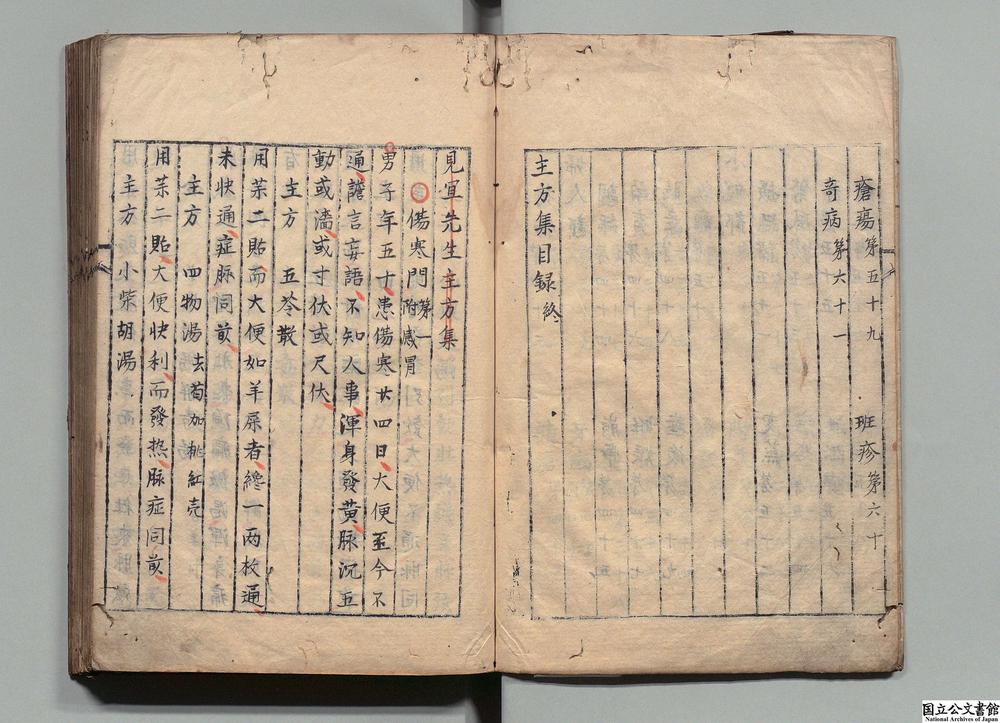 瘡瘍第五十九 班疹第六十
奇病第六十一
主方集目録終
見宜先生主方集
傷寒門第一附感冒
男子年五十患傷寒廿四日大便至今不
通譫言妄語不知大事渾身發黄脉沉五
動或濇或寸伏或尺伏
主方 五苓散
用茱二貼而大便如羊屎者纔一两枚通
未快通症脉同前
主方 四物湯去芍加桃紅壳
用茱二貼大便快利而發热脉症同前
主方 小柴胡湯
国立公文書館
National Archives of Japan